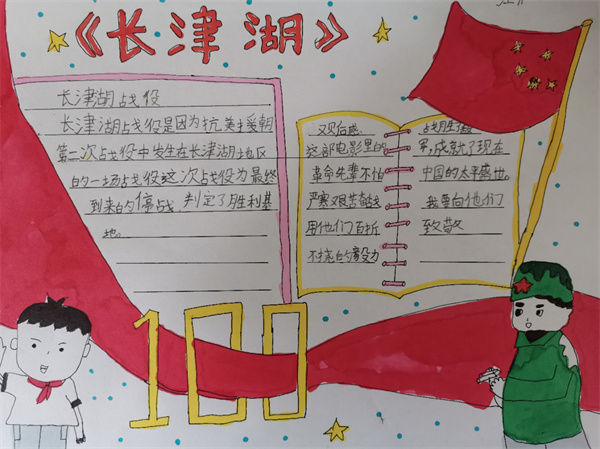 《长津湖》
长津湖战役
长津湖战役是因为抗美援朝
第二次战役中发生在长津湖地区
的一场战役这次战役为最终
到来的停战,判定了胜利基
地。
观后感
这部电影里的
革命先辈不怕
严寒艰苦奋战
用他们百折
不挠的意设力
战胜了
军,成就了现在
中国的太平盛世。
我要向他们
致敬
100